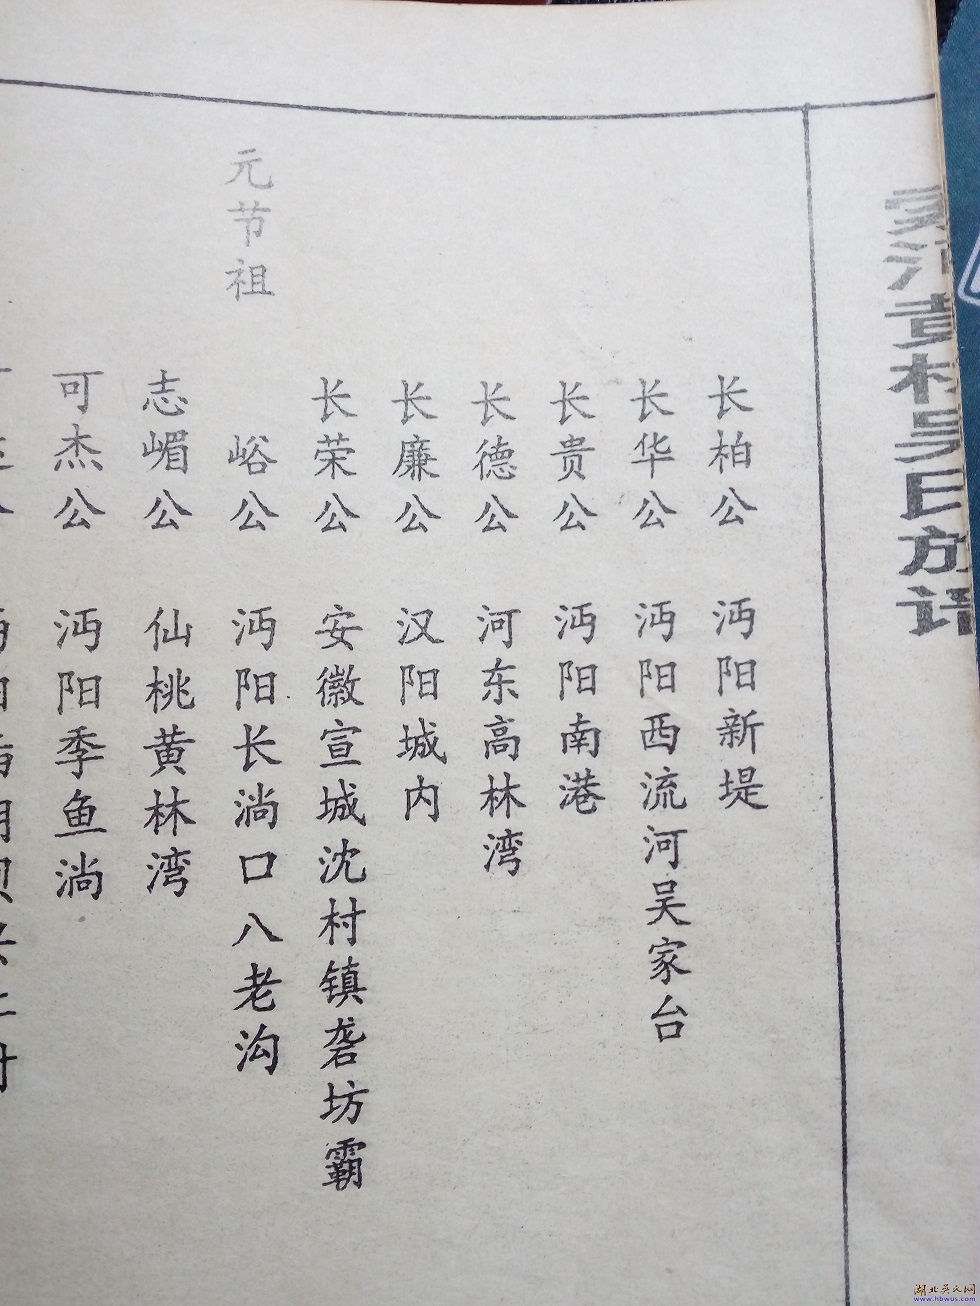 吴氏
长柏公 沔阳新堤
长华公 沔阳西流河吴家台
长贵公 沔阳南港
长德公 河东高林湾
长廉公 汉阳城内
长荣公 安徽宣城沈村镇砻坊霸
元节祖
峪公 沔阳长淌口八老沟
志嵋公 仙桃黄林湾
可杰公 沔阳季鱼淌
湖北吴氏网
www.hbwus.com